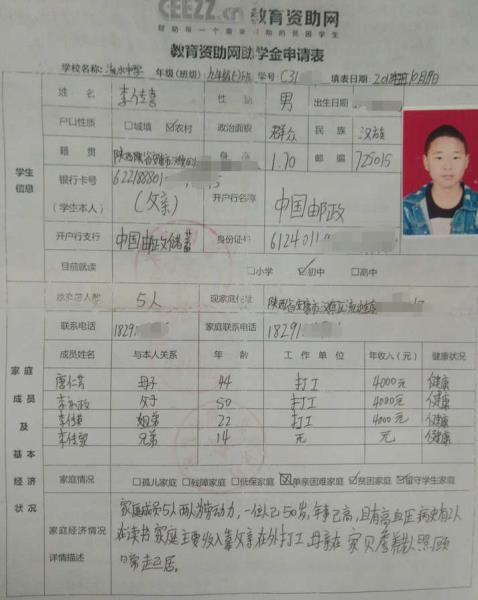 CEEZZ.cn 教育资助网
帮助每一个需要 助的贫困学生
教育资助网助学金申请表
学校名称: 流水中学 年级(班级) 九年级 班 学号 C31 填表日期 月 日
姓 名 李佳喜 性 别 男 出生日期
户口性质 □城镇 ☑农村 政治面貌 群众 民 族 汉族
籍 贯 陕西省安康市汉滨 身 高 1.70 邮 编 725015
学生信息
银行卡号 622188801
(学生本人) (父亲) 开户行名称 中国邮政
开户行支行 中国邮政储蓄 身份证 612401
目前就读 □小学 ☑初中 □高中
家庭总人数 5人 现家庭 陕西省安康市汉滨区流水
联系电话 1829 家庭联系电话 1829
家庭成员及基本经济状况
成员姓名 与本人关系 年 龄 工 作 单 位 年收入(元) 健康状况
唐仁芳 母子 44 打工 4000元 健康
李 政 父子 50 打工 4000元 健康
李佳 姐弟 22 打工 4000元 健康
李佳 兄弟 14 无 元 健康
家庭情况 □孤儿家庭 □残障家庭 □低保家庭 ☒单亲困难家庭 ☑贫困家庭 ☑留守学生家庭
家庭经济情况详情描述
家庭成员5人两人劳动力,一位人已50岁,年事已高,且有高血压病史有2人
在读书 家庭主要收入靠父亲在外打工 母亲在家 照顾
日常起居。